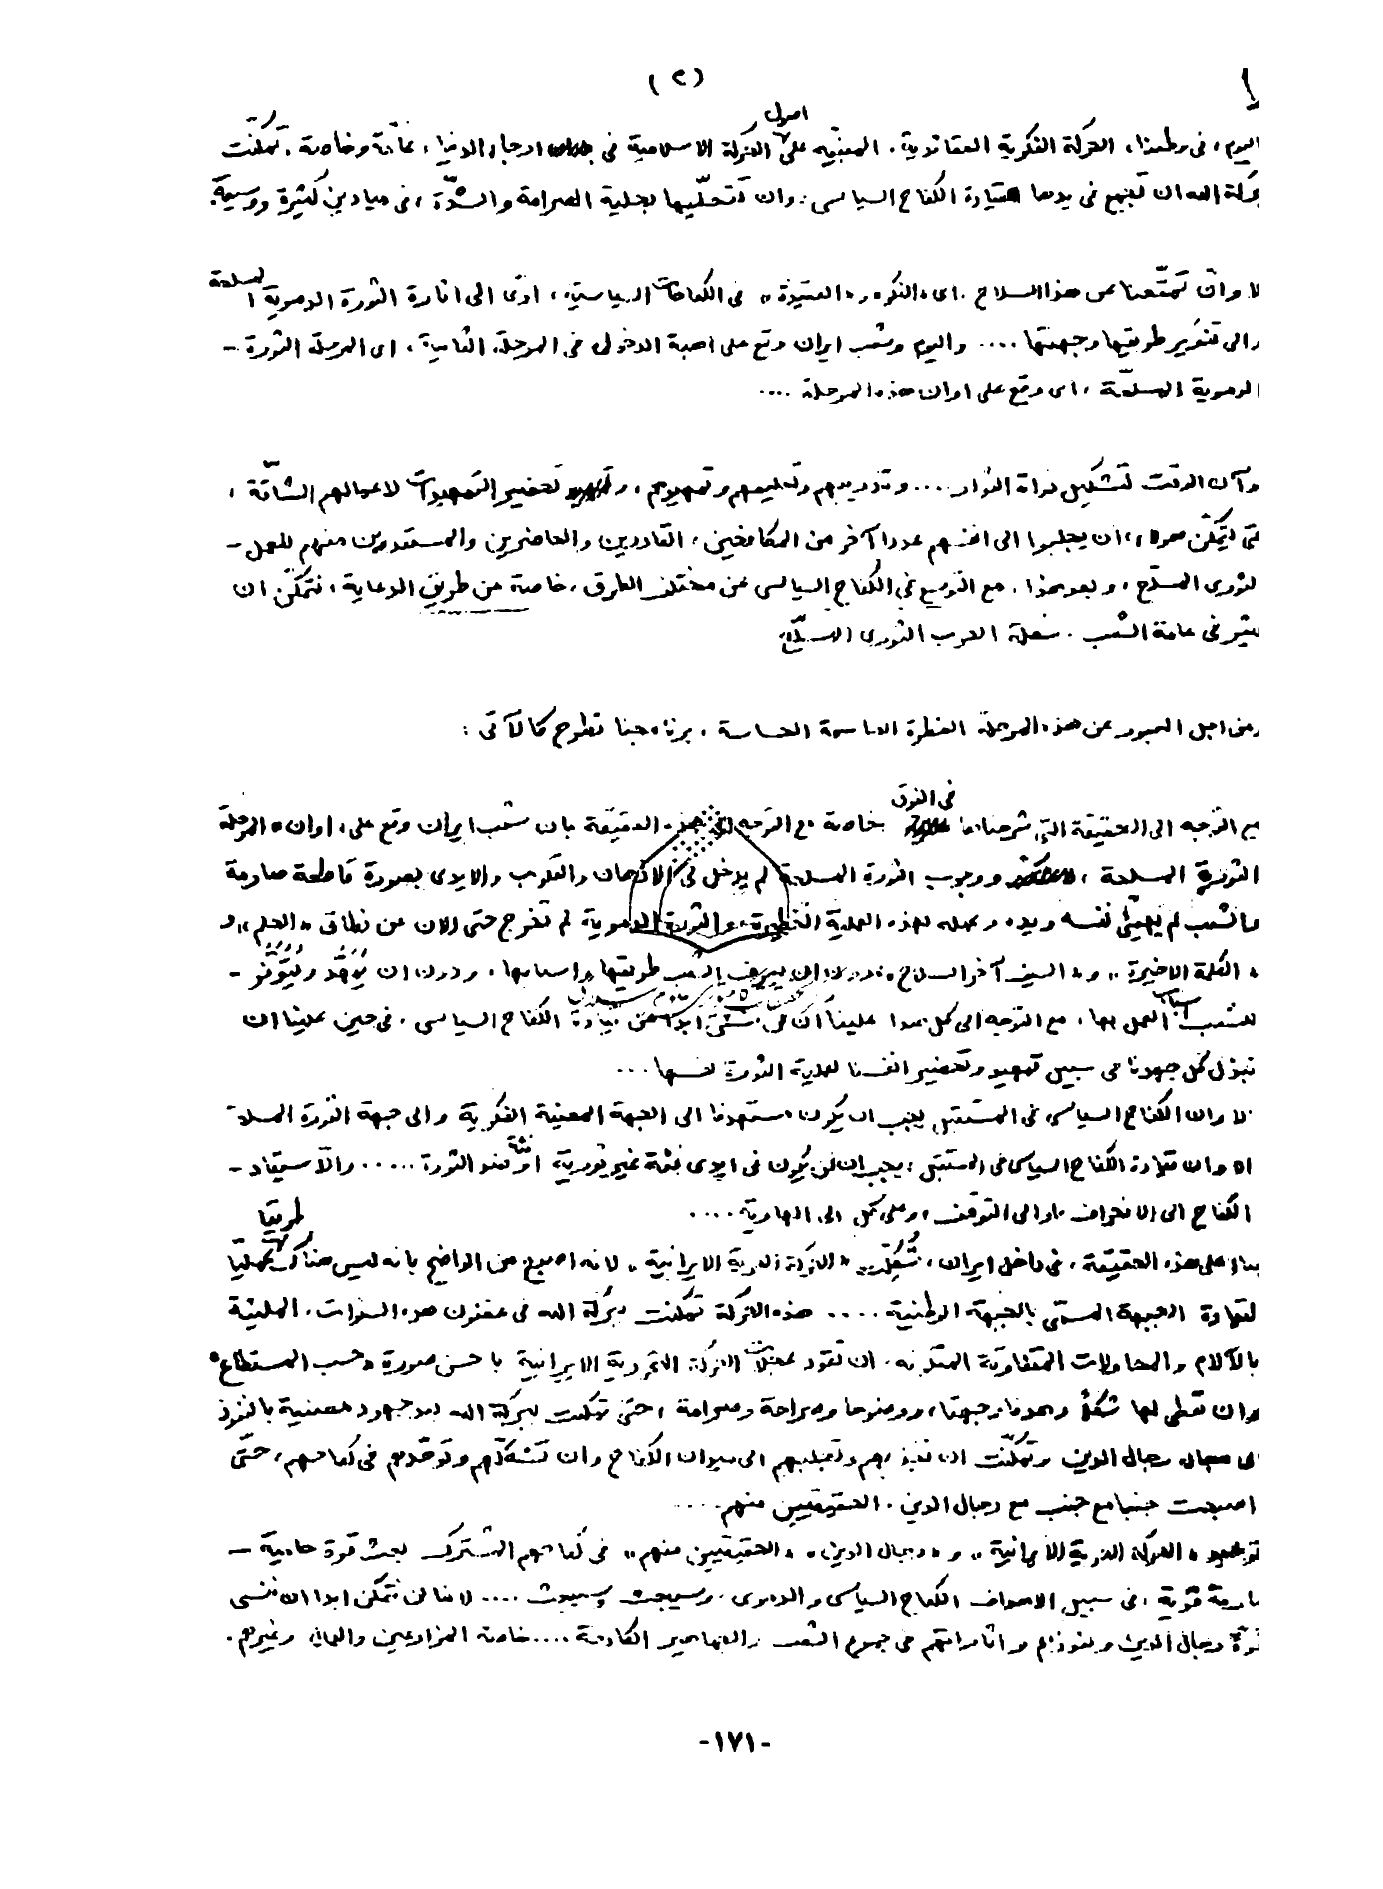 (٢)
اصول
اليوم، فى وطننا، الحركة الفكرية العقائدية، المبنية على الحركة الاسلامية فى ارجاء الدنيا، عامّة وخاصة، تمكّنت
بركة الله ان تجمع فى يدها قيادة الكفاح السياسى: وان تحلّيها بحلية الصرامة والشدّة، فى ميادين كثيرة ووسيعة.
الا وانّ تمتّعنا من هذا السلاح، اى «الفكر» و«العقيدة» فى الكفاحات السياسية، ادّى الى اثارة الثورة الدموية المسلحة
والى تنوير طريقها وجهتها .... واليوم وشعب ايران وقع على اهبة الدخول فى المرحلة الثانية، اى المرحلة الثورة -
الدموية المسلحّة، اى وقع على اوان هذه المرحلة ....
وآن الوقت لتشكيل نواة الثوار .... وتدريبهم وتعليمهم وتمهيدهم، و تحضير التمهيدات لاعمالهم الشاقّة،
حتى يتمكّن هولاء، ان يجلبوا الى انفسهم عددا آخر من المكافحين، القادرين والحاضرين والمستعدين منهم للعمل -
الثورى المسلّح، وبعد هذا، مع التوسيع فى الكفاح السياسى عن مختلف الطرق، خاصة عن طريق الدعاية، نتمكّن ان
نثير فى عامة الشعب، شعلة الحرب الثورى المسلّح.
ومن اجل العبور عن هذه المرحلة الخطرة الحاسمة الحساسة، برنامجنا تطرح كالآتى:
فى الفوق
مع التوجه الى الحقيقة التى شرحناها خاصة مع التوجه الى هذه الدقيقة بان شعب ايران وقع على، اوان «المرحلة
الثورية المسلحة، ووجوب الثورة المسلحة لم يدخل فى الاذهان والقلوب والايدى بصورة قاطعة صارمة
والشعب لم يهيّئ نفسه ويده ورجله لهذه العملية الخطيرة، والثورة الدموية لم تخرج حتى الان عن نطاق «العلم» و
«الكلمة الاخيرة» و«السيف آخر السلاح» دون ان يعرف الشعب طريقها واسبابها، ودون ان يُمَهَّد ويُتَوَفَّر -
للشعب اسباب العمل بها، مع التوجه الى كل هذا علينا ان الكفاح السياسى، فى حين علينا ان
نبذل كل جهدنا فى سبيل تمهيد وتحضير انفسنا لعملية الثورة نفسها ...
الا وان الكفاح السياسى فى المستقبل يجب ان يكون مستهدفا الى الجهة المعنية الفكرية والى جهة الثورة المسلحة
الا وان قيادة الكفاح السياسى فى المستقبل، يجب ان لن يكون فى ايدى فئة غير ثورية او فئة ضد الثورة ..... والّا سيقاد -
الكفاح الى الانحراف، او الى التوقف، وعلى كل الى الهاوية ....
طريقا
بناء على هذه الحقيقة، فى داخل ايران، شُكّلت «الحركة الحرية الايرانية» لانه اصبح من الواضح بانه ليس هناك عمليّا
لقيادة الجبهة المسمّى بالجبهة الوطنية .... هذه الحركة تمكّنت ببركة الله فى غضون هذه السنوات، المليئة
بالآلام والمحاولات المتفاوتة المتلونه، ان تقود الحركة التحررية الايرانية باحسن صورة «حسب المستطاع»
وان تعطى لها شكلاً وهدفا وجهتا، ووضوحا وصراحة وصرامة، حتى تمكنت ببركة الله بعد جهود مضنية بالنفوذ
الى مجال رجال الدين وتمكّنت ان تجذبهم وتجلبهم الى ميدان الكفاح وان تشكّلهم وتوحّدهم فى كفاحهم، حتّى
اصبحت جنبا مع جنب مع رجال الدين، الحقيقيين منهم ....
توحيد «الحركة الحرية الايرانية» و«رجال الدين» «الحقيقيين منهم» فى كفاحهم المشترك بعث قوة حامية -
صارمة قوية، فى سبيل الاهداف الكفاح السياسى والدموى، وسيبعث وسيبعث .... لاننا لن نتمكن ابدا ان ننسى
قوّة رجال الدين ونفوذهم واثاراتهم فى جموع الشعب والجماهير الكادحة .... خاصة المزارعين والعمال وغيرهم.
-١٧١-